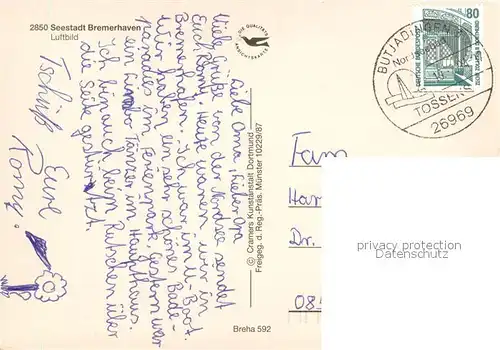 2850 Seestadt Bremerhaven
Luftbild
DIE QUALITÄTS
ANSICHTSKARTE
Liebe Oma, lieber Opa
Viele Grüße von der Nordsee sendet
Euch Romy. Heute waren wir in
Bremerhafen. Ich war im U-Boot.
Wir haben ein sehr schönes Bade-
paradies im Ferienpark. Gestern war
ein Tänzer im Haupthaus.
Ich bin auch beim Rutschen über
die Seite gestürzt.
Tschüß
Eure
Romy!
© Cramers Kunstanstalt Dortmund
Freigeg. d. Reg.-Präs. Münster 10229/87
Breha 592
BUTJADINGEN
TOSSENS
26969
80
DEUTSCHE BUNDESPOST
Fam
Har
Dr.
08
privacy protection
Datenschutz